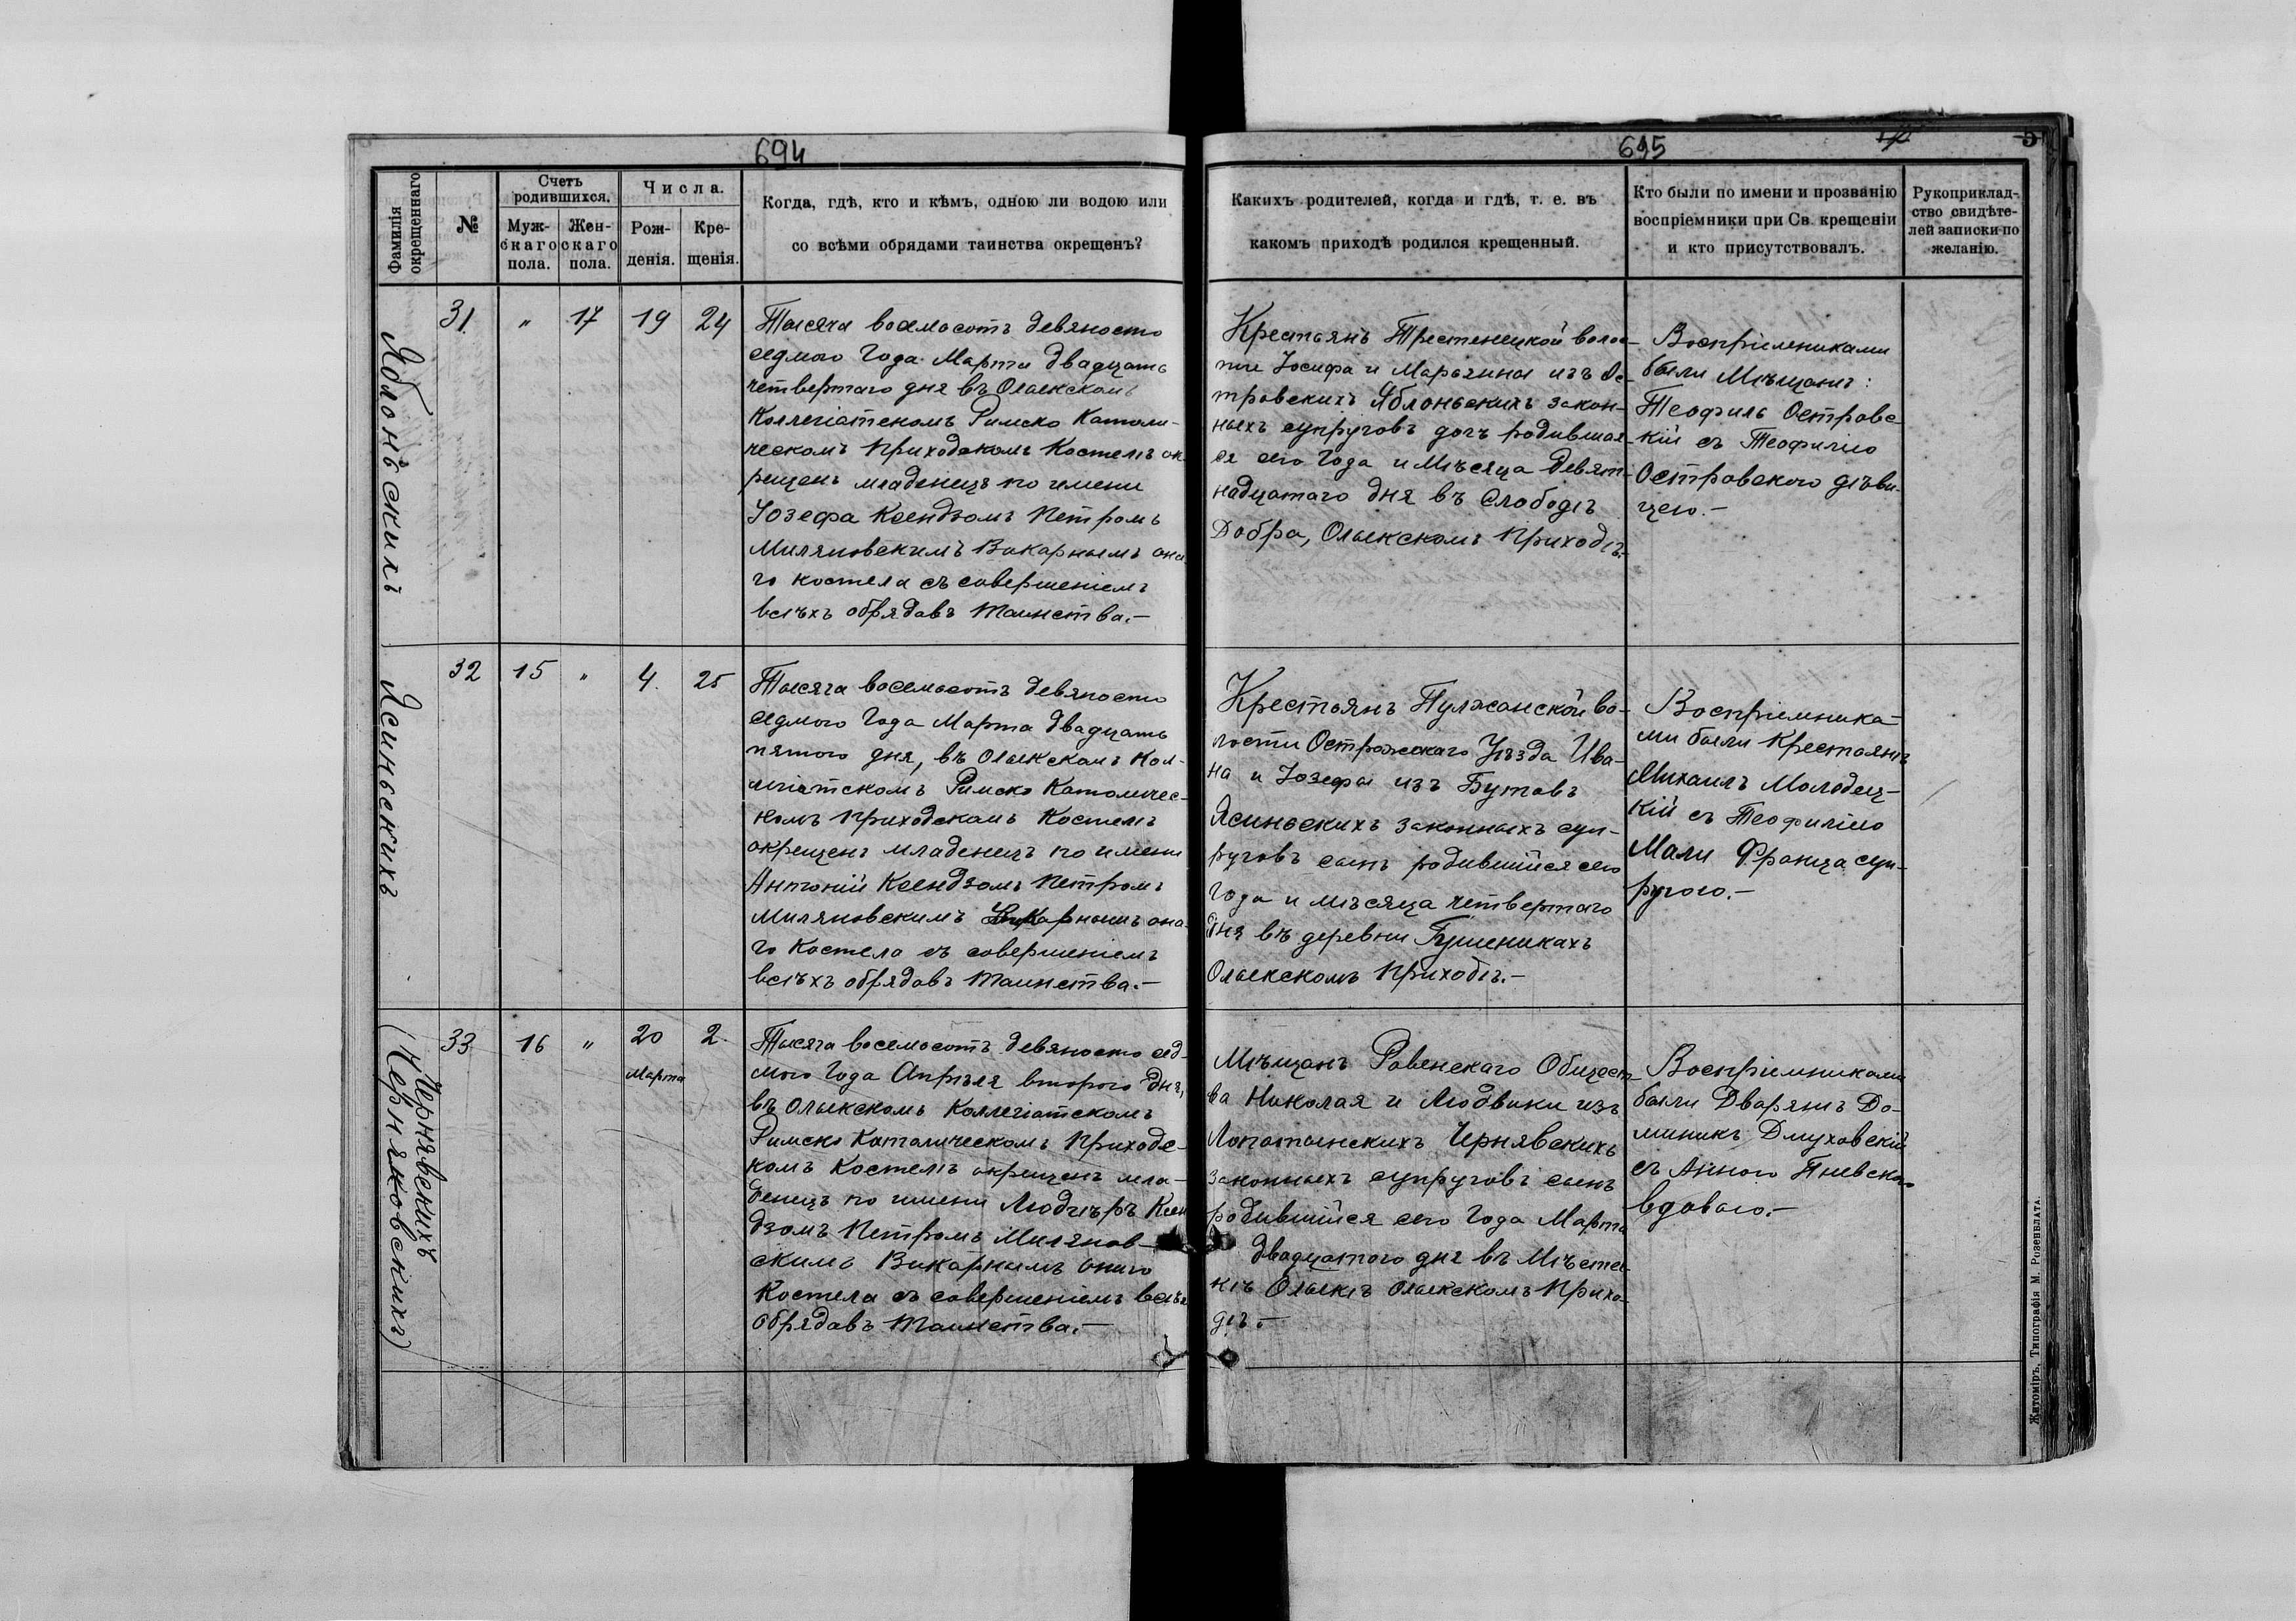 694
Фамилія окрещеннаго
№
Счетъ родившихся.
Муж-
скаго
пола.
Жен-
скаго
пола.
Числа.
Рож-
денія.
Кре-
щенія.
Когда, гдѣ, кто и кѣмъ, одною ли водою или
со всѣми обрядами таинства окрещенъ?
Яблоньскихъ
31.
"
17
19
24
Тысяча восемьсотъ девяносто
седмого Года Марта двадцать
четвертаго дня въ Олыкскомъ
Коллегіатскомъ Римско Католи-
ческомъ Приходскомъ Костелѣ ок-
рещенъ младенецъ по имени
Іозефа Ксендзомъ Петромъ
Миляновскимъ Викарнымъ она-
го костела съ совершеніемъ
всѣхъ обрядовъ Таинства.—
Ясиньскихъ
32
15
"
4.
25
Тысяча восемьсотъ девяносто
седмого Года Марта двадцать
пятого дня, въ Олыкскомъ Кол-
легіатскомъ Римско Католичес-
комъ Приходскомъ Костелѣ
окрещенъ младенецъ по имени
Антоній Ксендзомъ Петромъ
Миляновскимъ Викарнымъ она-
го Костела съ совершеніемъ
всѣхъ обрядовъ Таинства.—
Чернявскихъ
(Черняховскихъ)
33
16
"
20
Марта
2.
Тысяча восемьсотъ девяносто сед-
мого Года Апрѣля второго дня,
въ Олыкскомъ Коллегіатскомъ
Римско Католическомъ Приходс-
комъ Костелѣ окрещенъ мла-
денецъ по имени Людгѣръ Ксен
дзомъ Петромъ Милянов-
скимъ Викарнымъ онаго
Костела съ совершеніемъ всѣхъ
Обрядовъ Таинства.—
695
5
Какихъ родителей, когда и гдѣ, т. е. въ
какомъ приходѣ родился крещенный.
Кто были по имени и прозванію
воспріемники при Св. крещеніи
и кто присутствовалъ.
Рукоприклад-
ство свидѣте-
лей записки по
желанію.
Крестьянъ Тростенецкой волос-
ти Іосифа и Марьянны изъ Ос-
тровскихъ Яблоньскихъ закон-
ныхъ супруговъ дочъ родившая-
ся сего Года и Мѣсяца Девят-
надцатаго дня въ Слободѣ
Добра, Олыкскомъ Приходѣ.
Воспріемниками
были Мѣщане:
Теофиль Островс
кій съ Теофилію
Островского дѣви-
цею.—
Крестьянъ Пулжанской во-
лости Острожскаго Уѣзда Ива-
на и Іозефы изъ Бутовъ
Ясиньскихъ законныхъ суп-
руговъ сынъ родившійся сего
Года и мѣсяца четвертаго
дня въ деревни
Олыкскомъ Приходѣ.—
Воспріемника-
ми были Крестьяне
Михаилъ Молодец-
кій съ Теофилію
Мали Франца суп-
ругою.—
Мѣщанъ Ровенскаго Общест-
ва Николая и Людвики изъ
Лопатынскихъ Чернявскихъ
законныхъ супруговъ сынъ
родившійся сего Года Марта
двадцатого дня въ Мѣстеч-
кѣ Олыкѣ Олыкскомъ Прихо-
дѣ.—
Воспріемниками
были Дворяне До-
миникъ Длуховскій
съ Анною Пневско
вдовою.—
Житоміръ, Типографія М. Розенблата.